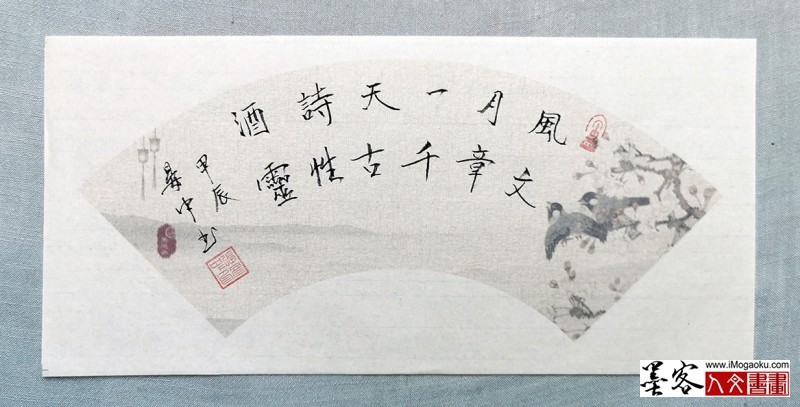 風月一天詩酒
文章千古性靈
甲辰
中书
www.iMogaoku.com
墨客人文書畫